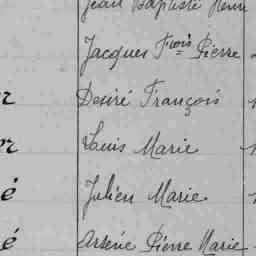 Jean Baptiste Henri
Jacques Frois Pierre
Desiré François
Louis Marie
Julien Marie
é
é Arsène Pierre Marie